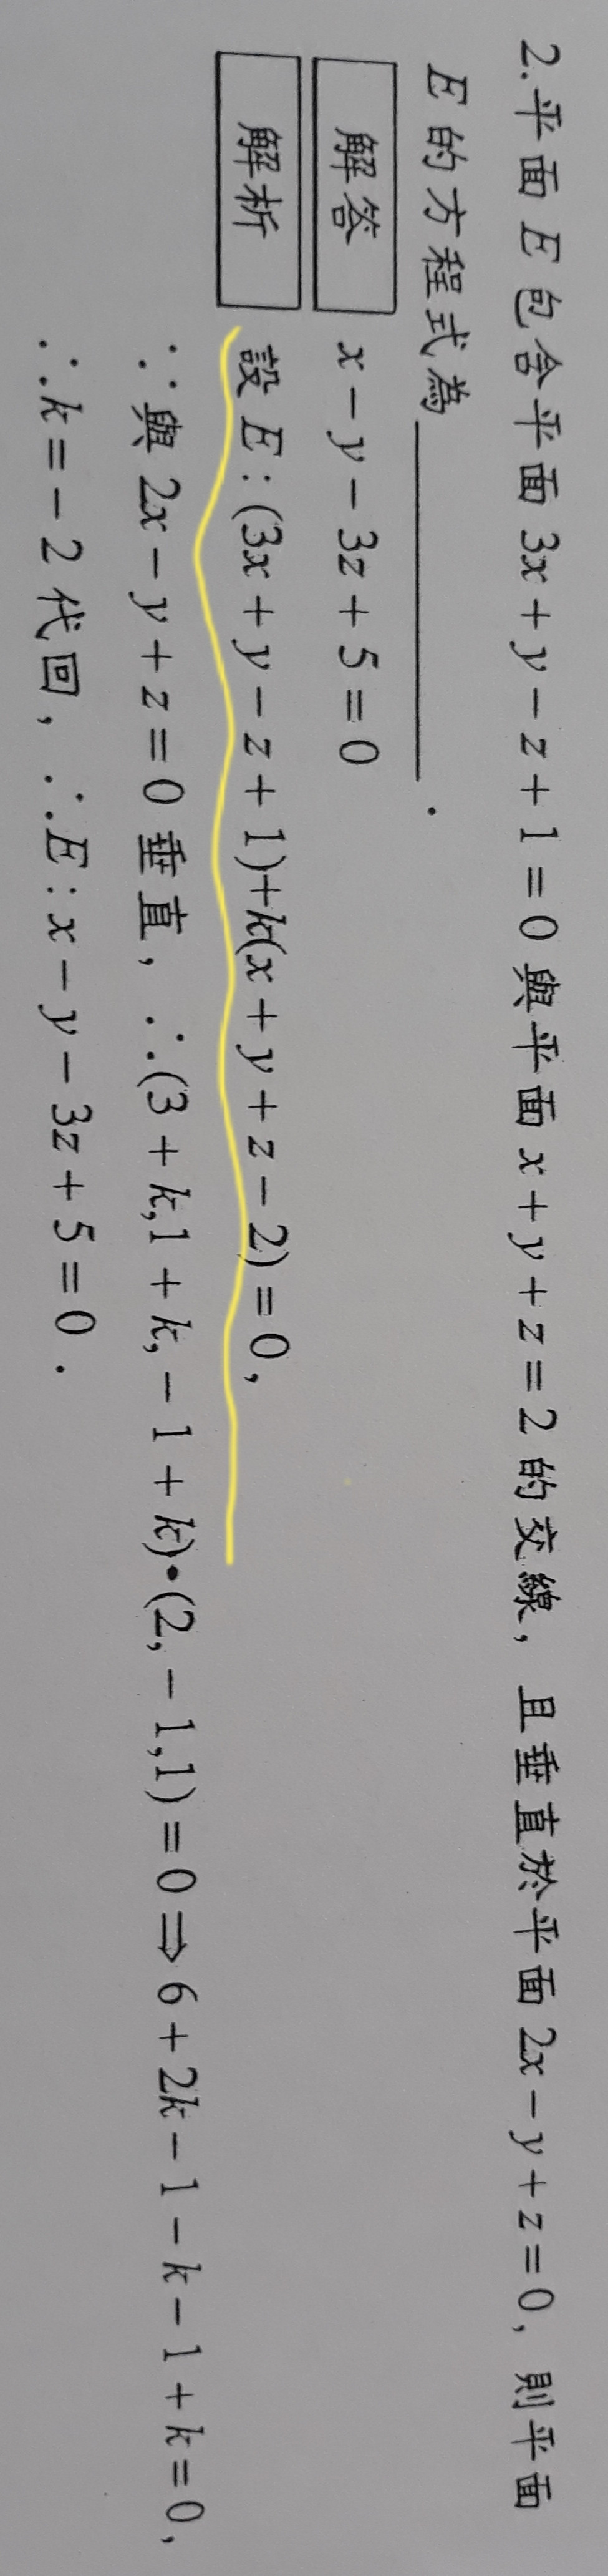 2.平面 E 包含平面 3x + y − z + 1 = 0 與平面 x + y + z = 2 的交線，且垂直於平面 2x − y + z = 0，則平面
E 的方程式為________．
解答 x − y − 3z + 5 = 0
解析 設 E : (3x + y − z + 1)+k(x + y + z − 2) = 0，
∵與 2x − y + z = 0 垂直，∴(3 + k,1 + k, − 1 + k)•(2, − 1,1) = 0 ⇒ 6 + 2k − 1 − k − 1 + k = 0，
∴k = − 2 代回，∴E : x − y − 3z + 5 = 0．